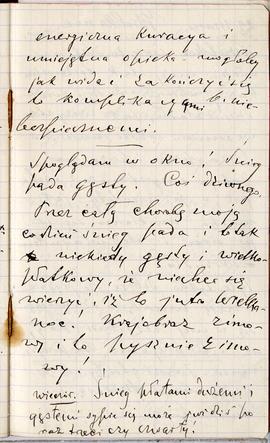 energiczna kuracya i
umiejętna opieka mogłaby
jak widać zakończyć się
to komplikacyami b. nie-
bezpiecznemi.
Spoglądam w okno! Śnieg
pada gęsty. Coś dziwnego.
Przez całą chorobę moją
codzień śnieg pada i to tak
niekiedy gęsty i wielko-
płatkowy, że niechce się
wierzyć, iż to jutro Wielka-
noc! Krajobraz zimo-
wy i to pysznie zimo-
wy!
wieczór. Śnieg płatami dużemi i
gęstemi sypie się może już dziś po
raz trzeci czy czwarty.